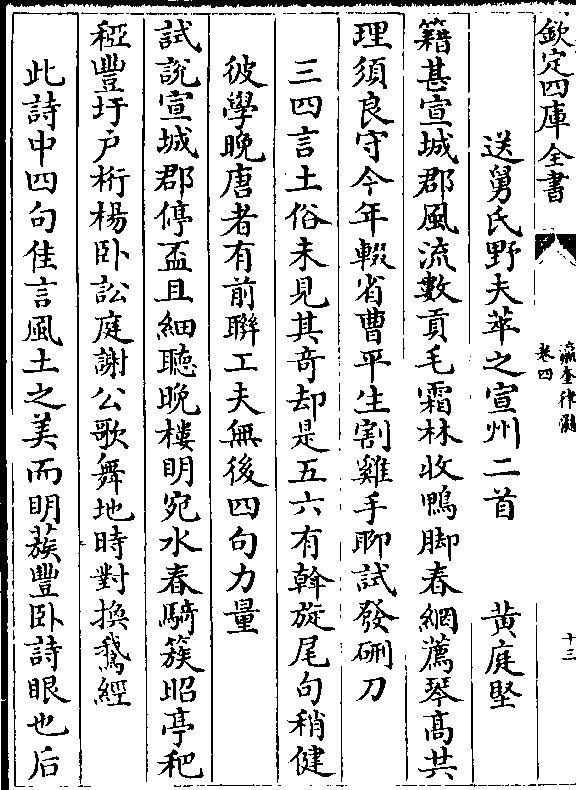 欽定四庫全書
瀛奎律髓
卷四
十三
送舅氏野夫萃之宣州二首 黃庭堅
籍甚宣城郡風流數貢毛霜林收鴨脚春網薦琴髙共
理須良守今年輟省曹平生割雞手聊試發硎刀
三四言土俗未見其奇却是五六有斡旋尾句稍健
彼學晚唐者有前聯工夫無後四句力量
試說宣城郡停盃且細聽晚樓明宛水春騎簇昭亭䆉
稏豐圩户桁楊卧訟庭謝公歌舞地時對換鵞經
此詩中四句佳言風土之美而明蔟豐卧詩眼也后